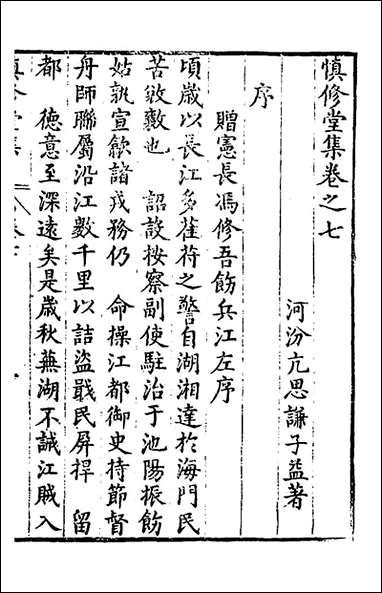 慎修堂集卷之七
河汾亢思謙子益著
序
贈憲長馮修吾飭兵江左序
頃歲以長江多萑苻之警自湖湘達於海門民
苦敓敪也 詔設按察副使駐治于池陽振飭
姑孰宣歙諸戎務仍 命操江都御史持節督
舟師聯屬沿江數千里以詰盜戢民屏捍 留
都 德意至深遠矣是歲秋蕪湖不誡江賊入